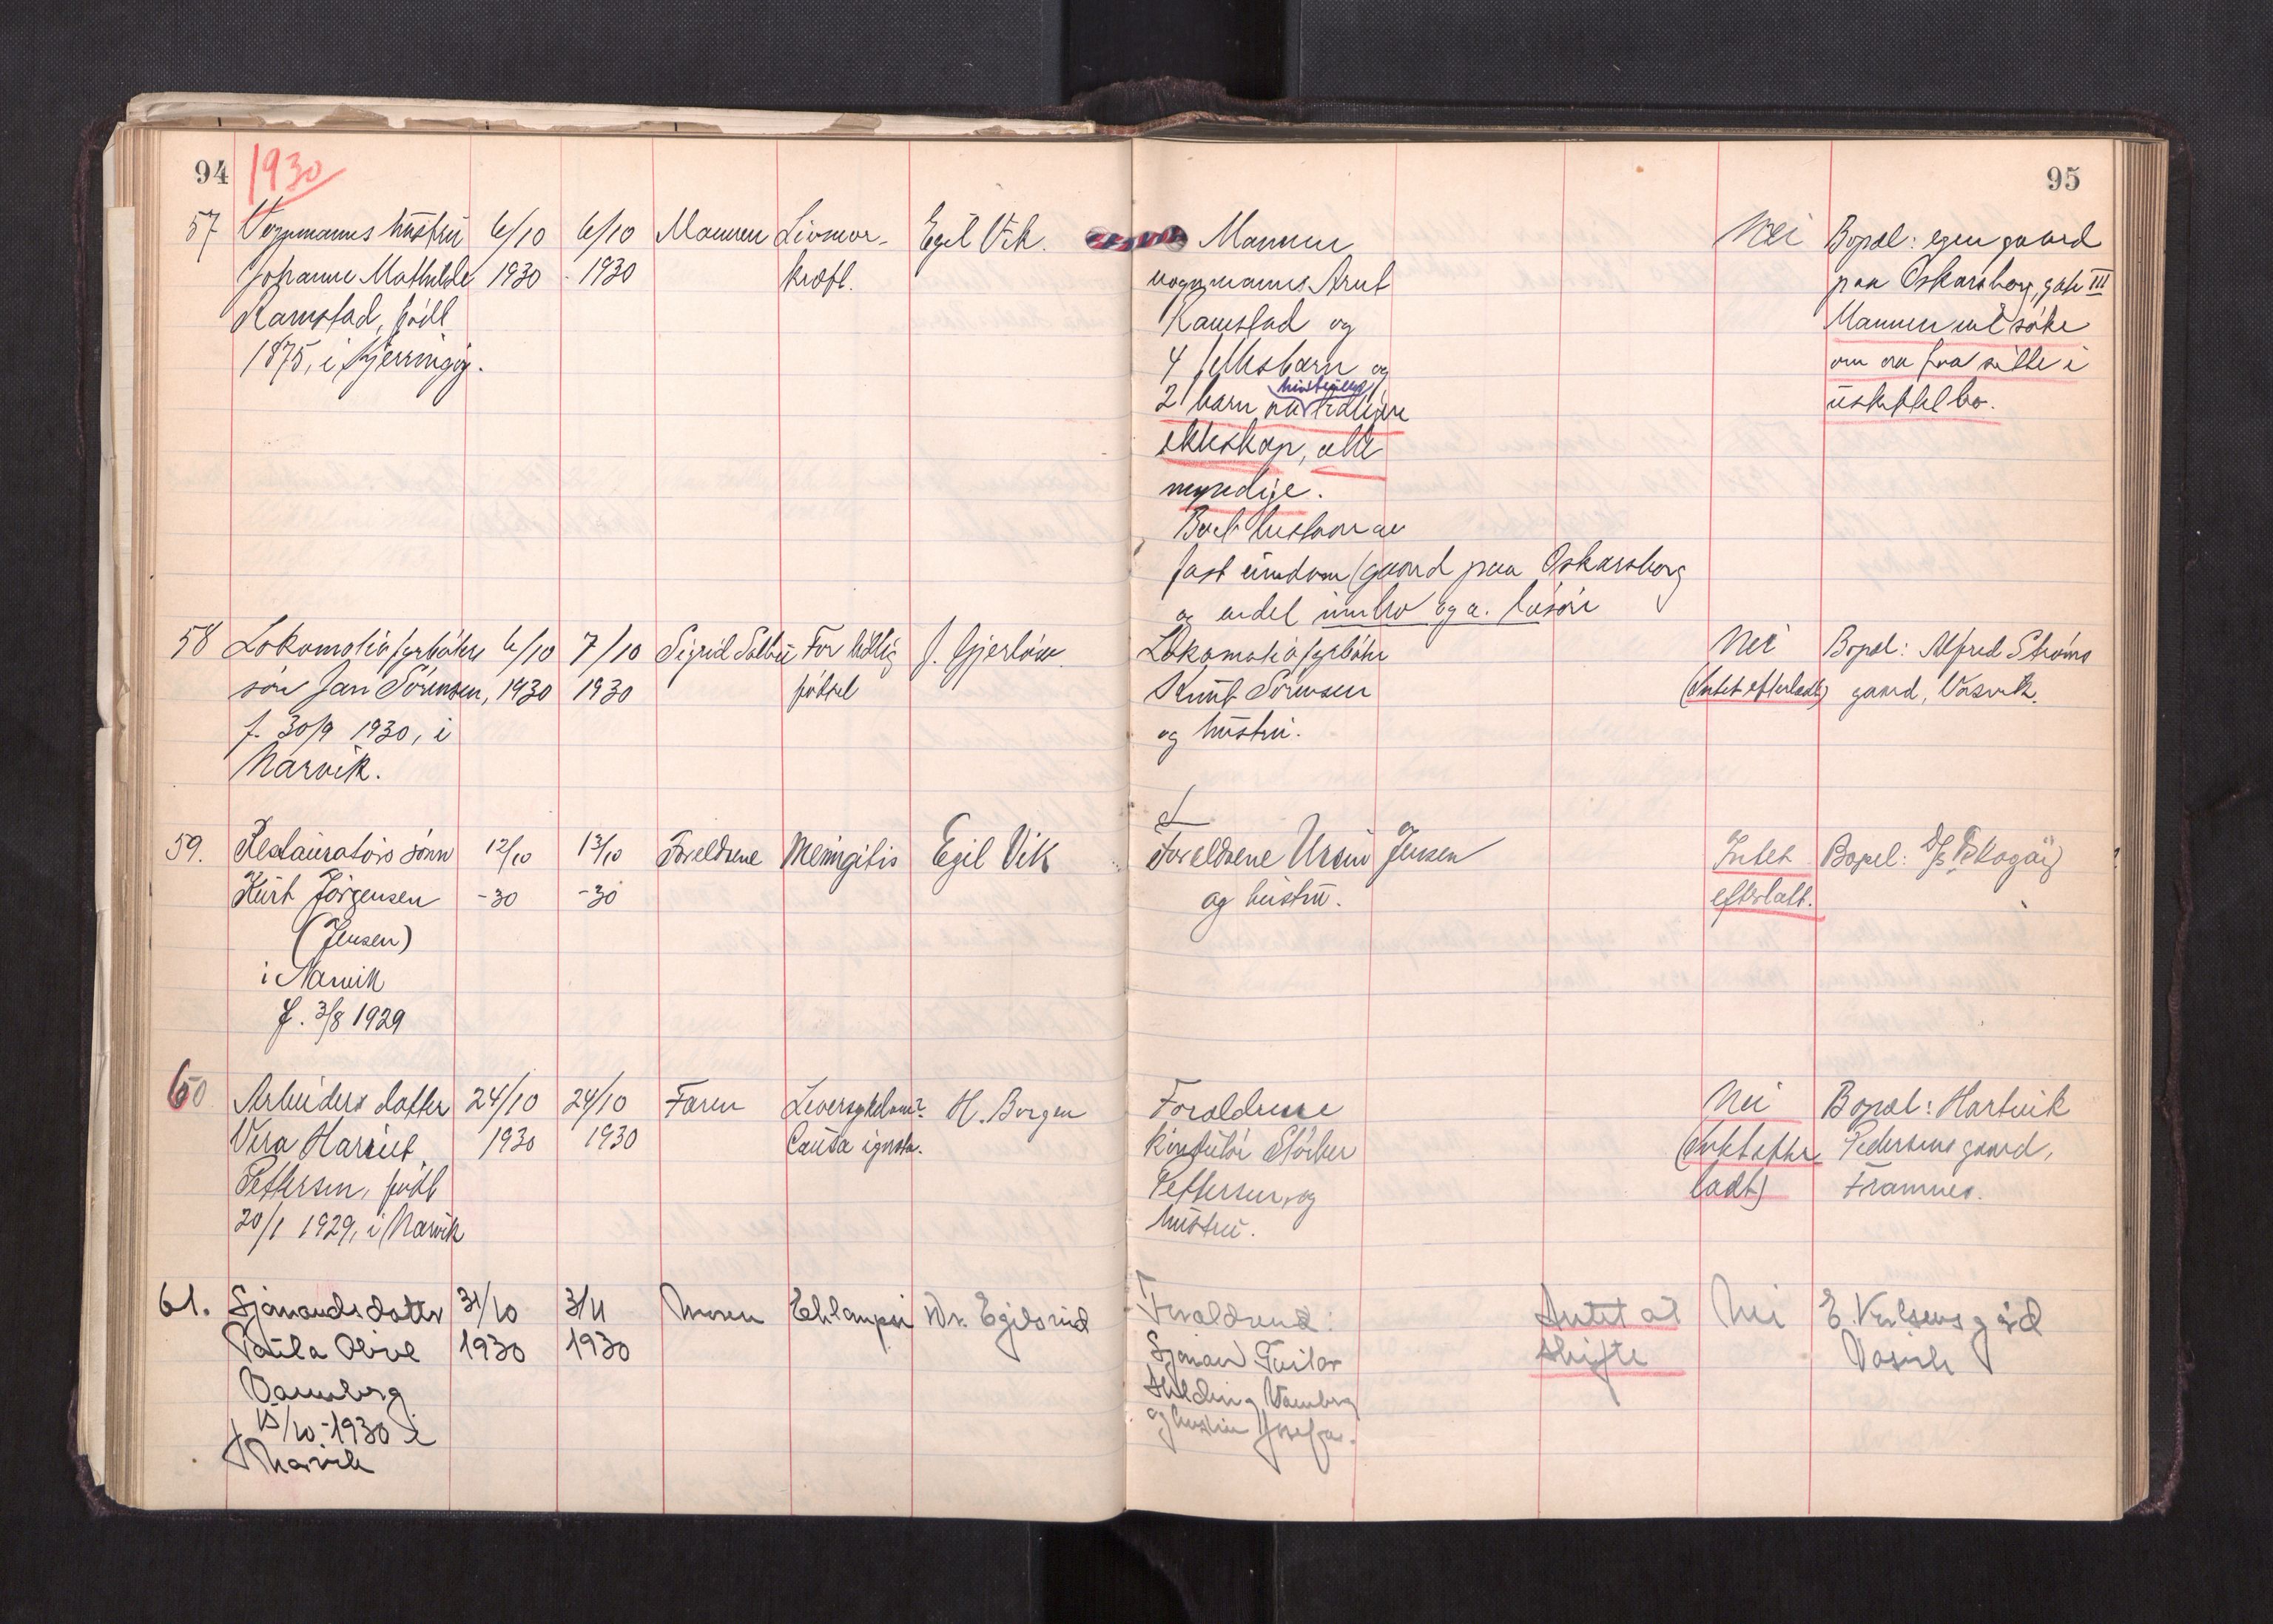 94 1930
57 Vognmanns hustru 6/10 6/10 Mannen Livmor- Egil Vik.
Johanne Mathilde 1930 1930 kræft.
Ramstad, født
1875, i Kjerringøy.
58 Lokomotivfyrbøters 6/10 7/10 Sigrid Solbu For tidlig J. Gjerløw.
søn Jan Sörensen, 1930 1930 fødsel
f. 30/9 1930, i
Narvik.
59. Restauratørs sønn 12/10 13/10 Foreldrene Meningitis Egil Vik
Kurt Jörgensen -30 -30
(Jensen)
i Narvik
f. 3/8 1929
60 Arbeiders datter 24/10 24/10 Faren H. Borgen
Vera Harriet 1930 1930 Causa ignota.
Pettersen, født
20/1 1929, i Narvik
61. Sjømands datter 31/10 3/11 Moren Eklampsi Dr. Egilsrud
Paula Olive 1930 1930
Vamberg
f 15/10-1930 i
Narvik
95
Mannen Nei Bopæl: egen gaard
vognmann Arnt paa Oskarsborg, gate III
Ramstad og Mannen vil søke
4 fellesbarn og om aa faa sitte i
2 barn av tidligere uskiftet bo.
ekteskap, alle
myndige.
Boet bestaar av
fast eiendom (gaard paa Oskarsborg
og endel innbo og a. løsøre
Lokomotivfyrbøter Nei Bopæl: Alfred Strøms
Knut Sørensen (Intet efterladt) gaard, Vasvik.
og hustru.
Foreldrene Ursin Jensen Intet Bopel:
og hustru. efterlatt.
Foreldrene Nei Bopæl: Hartvik
Pettersen og (Intet efter- Pedersens gaard,
hustru. ladt) Framnes.
Foreldrene: Intet at Nei
Sjøman skifte Vasvik
Hilding Vamberg
og hustru Josefa.